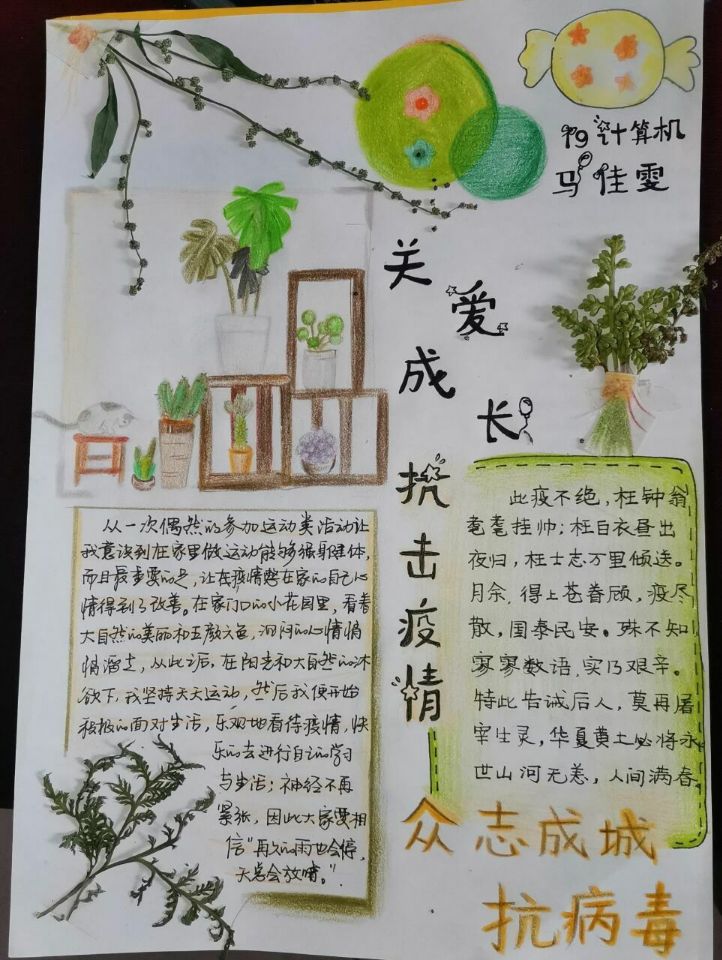 19计算机
马佳雯
关爱成长
抗击疫情
从一次偶然的参加运动类活动让
我意识到在家里做运动能够强身健体,
而且最重要的是,让在疫情憋在家的自己心
情得到了改善。在家门口的小花园里,看着
大自然的美丽和五颜六色,沮闷的心情悄
悄溜走,从此之后,在阳光和大自然的沐
欲下,我坚持天天运动,然后我便开始
积极的面对生活,乐观地看待疫情,快
乐的去进行自己的学习
与生活;神经不再
紧张,因此大家要相
信"再久的雨也会停,
天总会放晴。"
此疫不绝,枉钟翁
耄耋挂帅;枉白衣昼出
夜归,枉士志万里倾送。
月余,得上苍眷顾,疫尽
散,国泰民安。殊不知
寥寥数语,实乃艰辛。
特此告诫后人,莫再屠
宰生灵,华夏黄土必将永
世山河无恙,人间满春。
众志成城
抗病毒